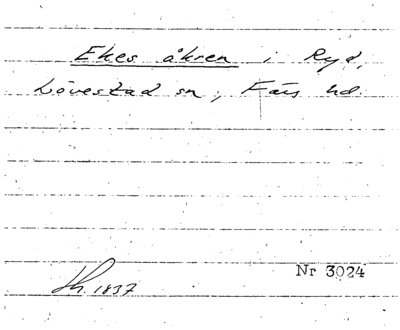 Ekes åkren i Ryd,
Lövestad sn, Färs hd
Nr 3024
Lh. 1837